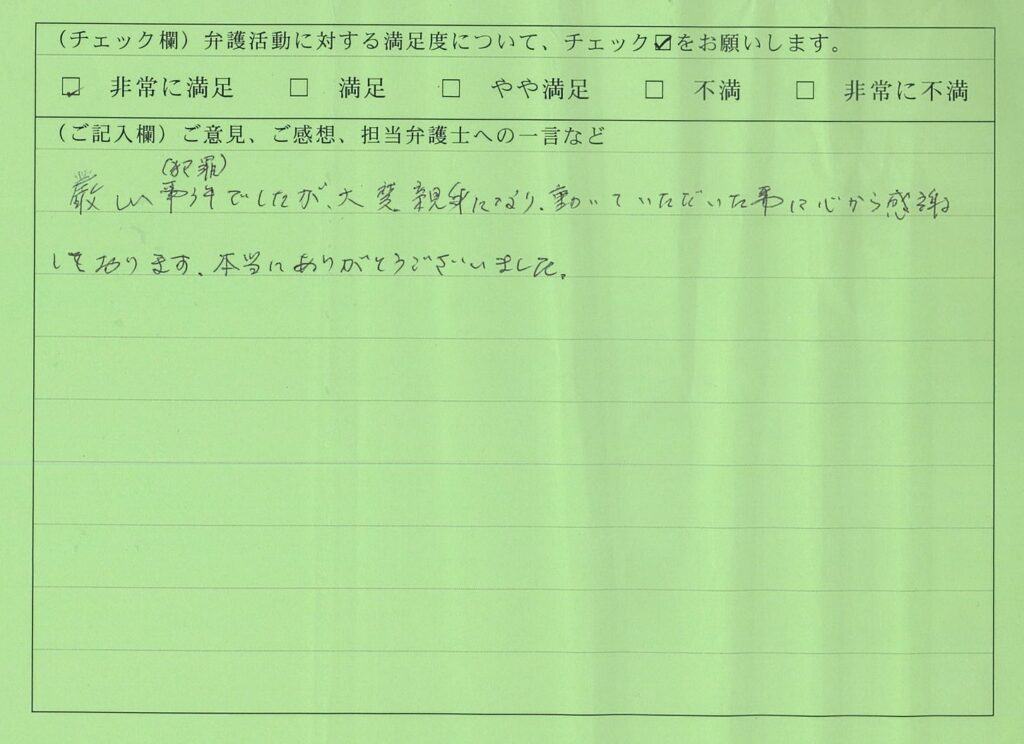 (チェック欄)弁護活動に対する満足度について、チェック☑をお願いします。
☑ 非常に満足 □ 満足 □ やや満足 □ 不満 □ 非常に不満
(ご記入欄)ご意見、ご感想、担当弁護士への一言など
(犯罪)
厳しい事件でしたが、大変親身になり、動いていただいた事に心から感謝
しております、本当にありがとうございました。